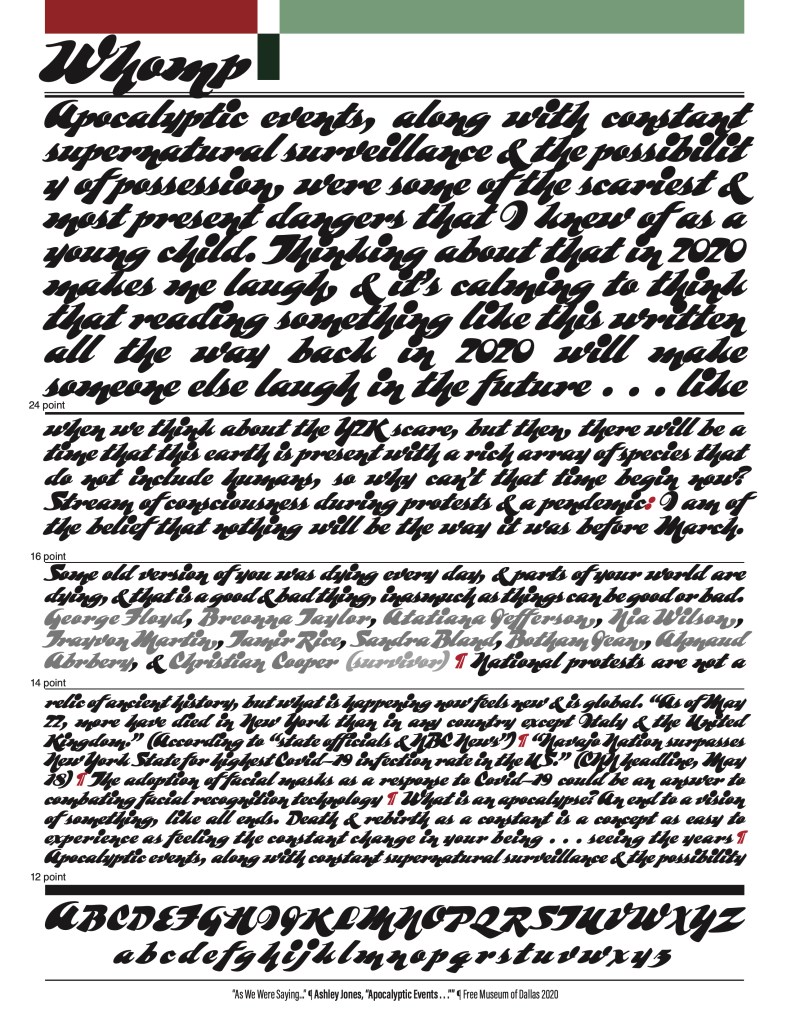 Whomp
Apocalyptic events, along with constant
supernatural surveillance & the possibilit
y of possession, were some of the scariest &
most present dangers that I knew of as a
young child. Thinking about that in 2020
makes me laugh, & it's calming to think
that reading something like this written
all the way back in 2020 will make
someone else laugh in the future . . . like
24 point
when we think about the Y2K scare, but then, there will be a
time that this earth is present with a rich array of species that
do not include humans, so why can't that time begin now?
Stream of consciousness during protests & a pendemic: I am of
the belief that nothing will be the way it was before March.
16 point
Some old version of you was dying every day, & parts of your world are
dying, & that is a good & bad thing, inasmuch as things can be good or bad.
George Floyd, Breonna Taylor, Atatiana Jefferson, Nia Wilson,
Trayvon Martin, Tamir Rice, Sandra Bland, Botham Jean, Ahmaud
Abrbery, & Christian Cooper (survivor) ¶ National protests are not a
14 point
relic of ancient history, but what is happening now feels new & is global. “As of May
22, more have died in New York than in any country except Italy & the United
Kingdom.” (According to “state officials & NBC News”) ¶ “Navajo Nation surpasses
New York State for highest Covid–19 infection rate in the U.S.” (CNN headline, May
18) ¶ The adoption of facial masks as a response to Covid–19 could be an answer to
combating facial recognition technology ¶ What is an apocalypse? An end to a vision
of something, like all ends. Death & rebirth as a constant is a concept as easy to
experience as feeling the constant change in your being . . . seeing the years ¶
Apocalyptic events, along with constant supernatural surveillance & the possibility
12 point
ABCDEFGHIJKLMNOPQRSTUVWXYZ
abcdefghijklmnopqrstuvwxyz
“As We Were Saying...” ¶ Ashley Jones, “Apocalyptic Events . . .”” ¶ Free Museum of Dallas 2020